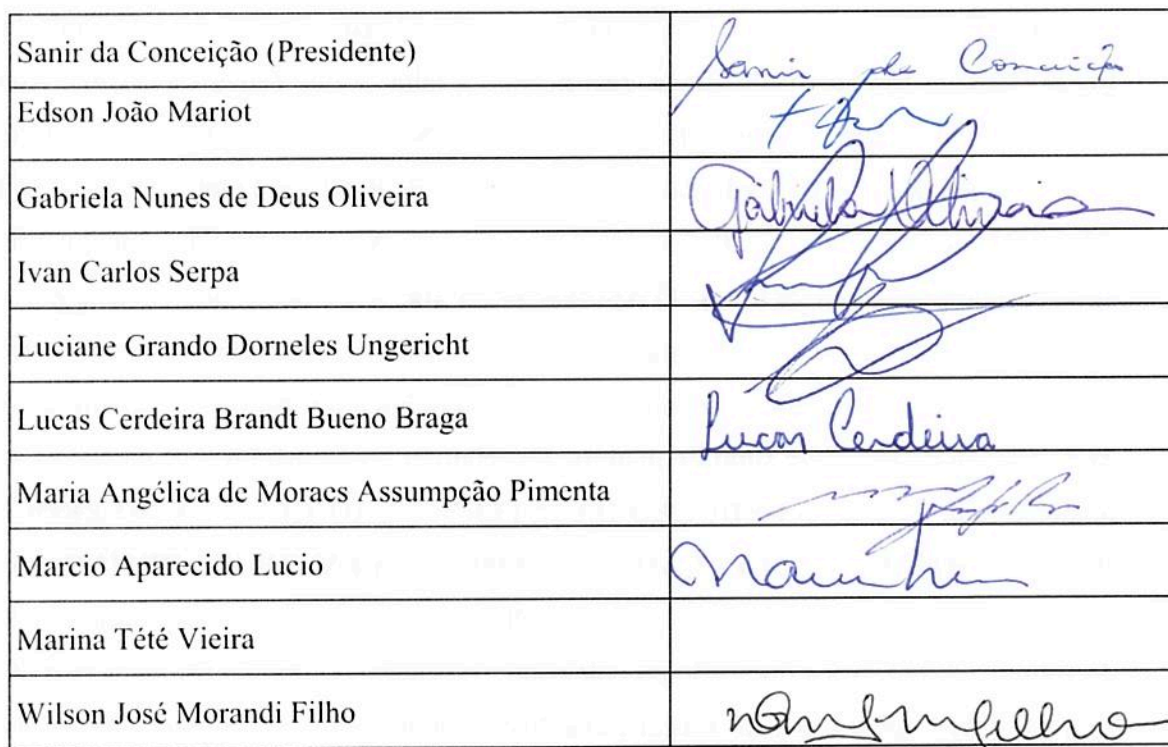 Sanir da Conceição (Presidente) Sanir da Conceição
Edson João Mariot
Gabriela Nunes de Deus Oliveira Gabriela Oliveira
Ivan Carlos Serpa
Luciane Grando Dorneles Ungericht
Lucas Cerdeira Brandt Bueno Braga Lucas Cerdeira
Maria Angélica de Moraes Assumpção Pimenta
Marcio Aparecido Lucio
Marina Tété Vieira
Wilson José Morandi Filho